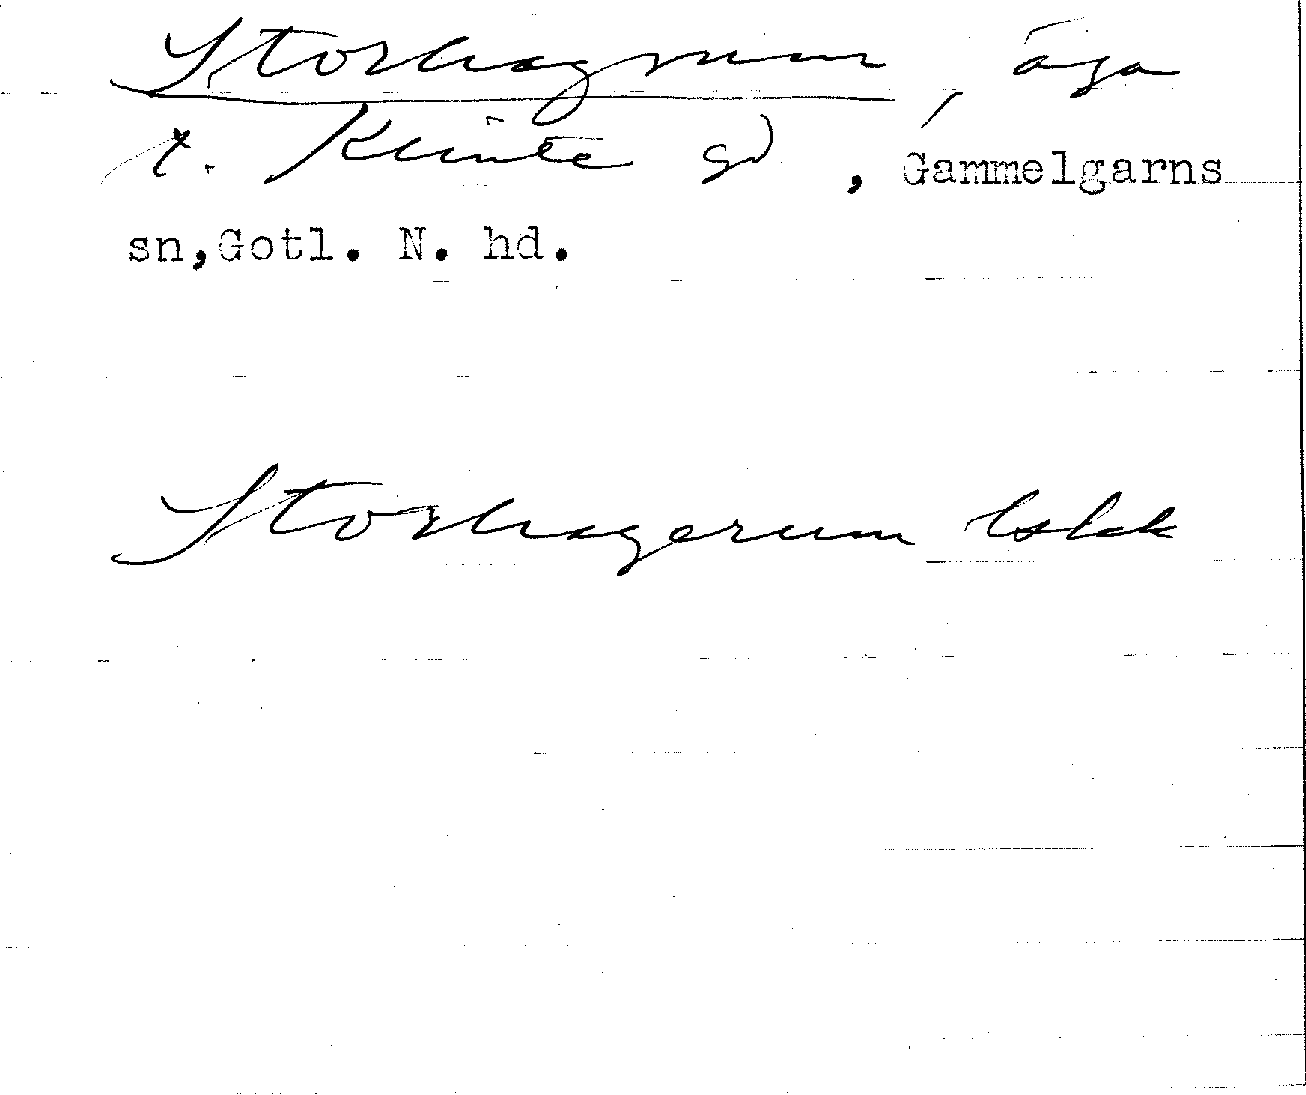 Storhagrum, äga
t. Klinte gd, Gammelgarns
sn,Gotl. N. hd.
Storhagerum lskk